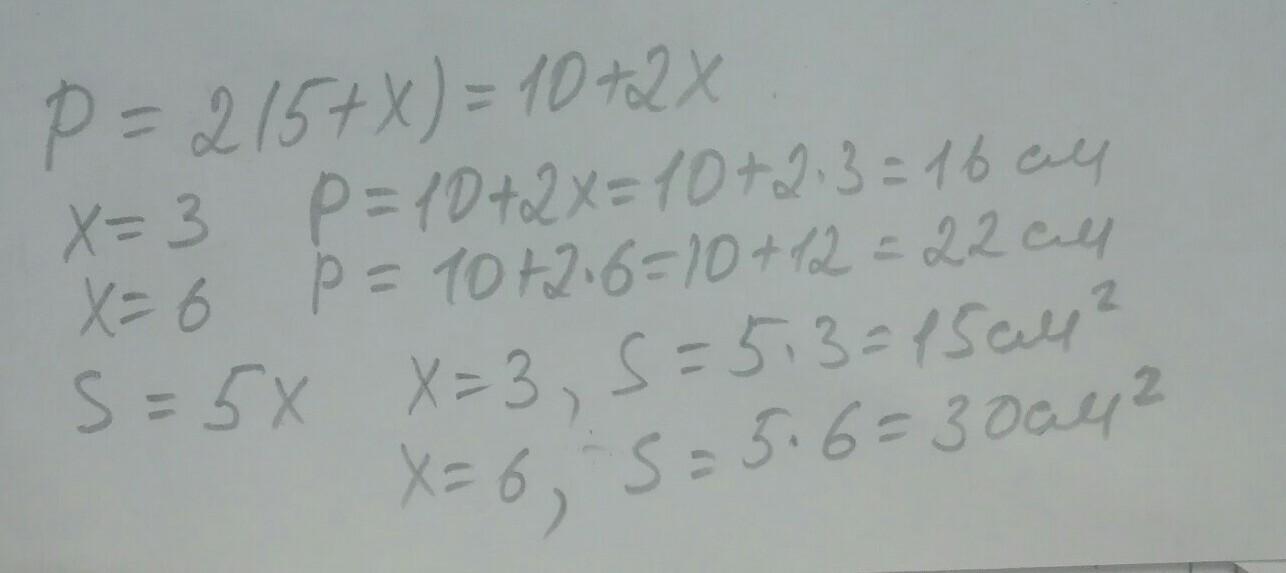 P = 2(5+x) = 10+2x
x=3 P=10+2x=10+2·3=16 см
x=6 P= 10+2·6=10+12=22 см
S = 5x x=3, S = 5·3=15 см²
x=6, S = 5·6=30 см²